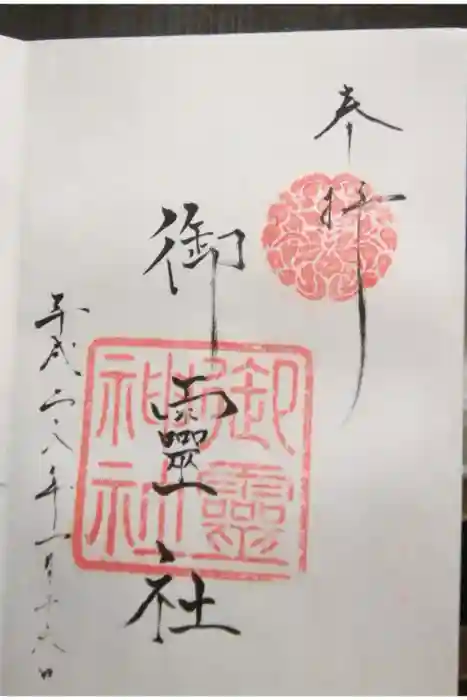 奉拝
御靈社
御靈神社
平成二八年一月十六日